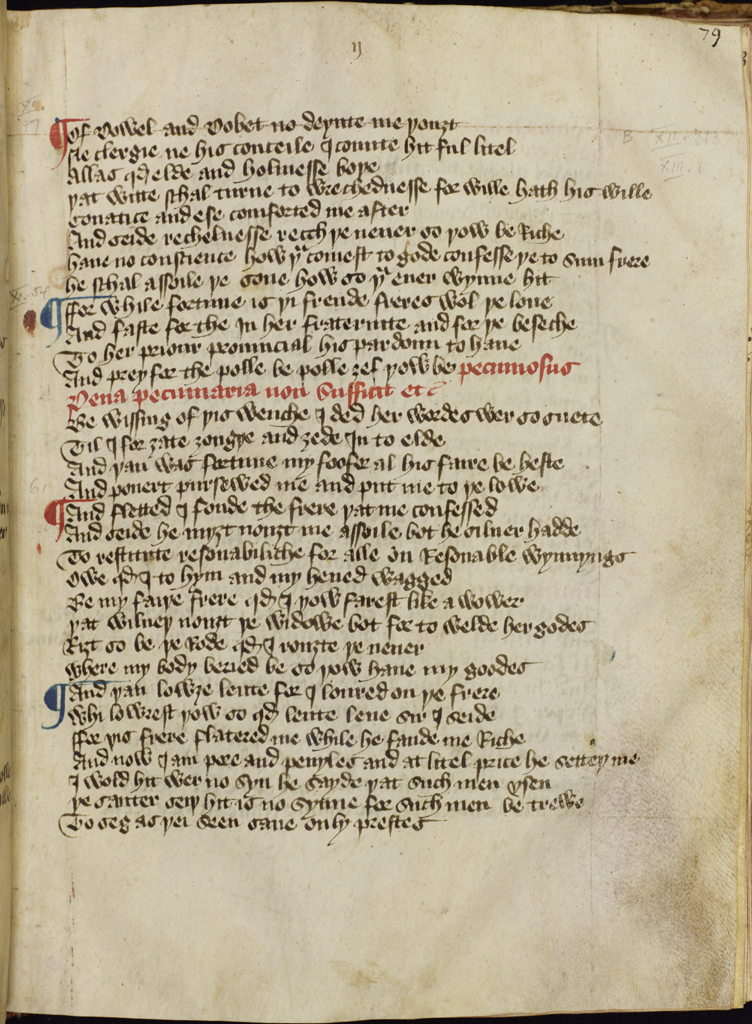 79
¶Of dowel and dobet no deynte me þouȝt
Ne clergie ne his conceile I counte hit ful litel
Allas qd elde and holinesse boþe
þat witte schal turne to wrechednesse for wille hath his wille
Couatice and ese comforted me after
And seide rechelnesse recch þe neuer so þow be Riche
haue no conscience how þu comest to gode confesse þe to sum frere
he schal assoile þe sone how so þu euer wynne hit
¶ffor while fortune is þi frende freres wol þe loue
And faste for the In her fraternite and for þe beseche
To her priour prouincial his pardoun to haue
And prey for the polle be polle ȝef þow be pecuniosus
Pena pecuniaria non sufficit etc
Be wissing of þis wenche I ded her wordes wer so suete
Til I for ȝate ȝongþe and ȝede In to elde
And þan was fortune my foo for al his faire be heste
And pouert pursewed me and put me to þe lowe
¶And fletted I fonde the frere þat me confessed
And seide he myȝt nouȝt me assoile bot he siluer hadde
To restitute resonabiliche for alle on Resonable wynnyngs
Owe qd I to hym and my heued wagged
Be my faiþe frere qd I þow farest like a wower
þat wilneþ nouȝt þe widowe bot for to welde her godes
Riȝt so be þe Rode qd I rouȝte þe neuer
where my body beried be so þow haue my goodes
¶And þan lowȝe leute for I loured on þe frere
whi lowrest þow so qd leute leue sir I seide
ffor þis frere flatered me while he fande me Riche
And now I am pore and penyles and at litel price he setteþ me
I wold hit wer no syn he sayde þat such men vsen
þe sauter seiþ hit is no synne for such men be trewe
To seg as þei seen saue only prestes